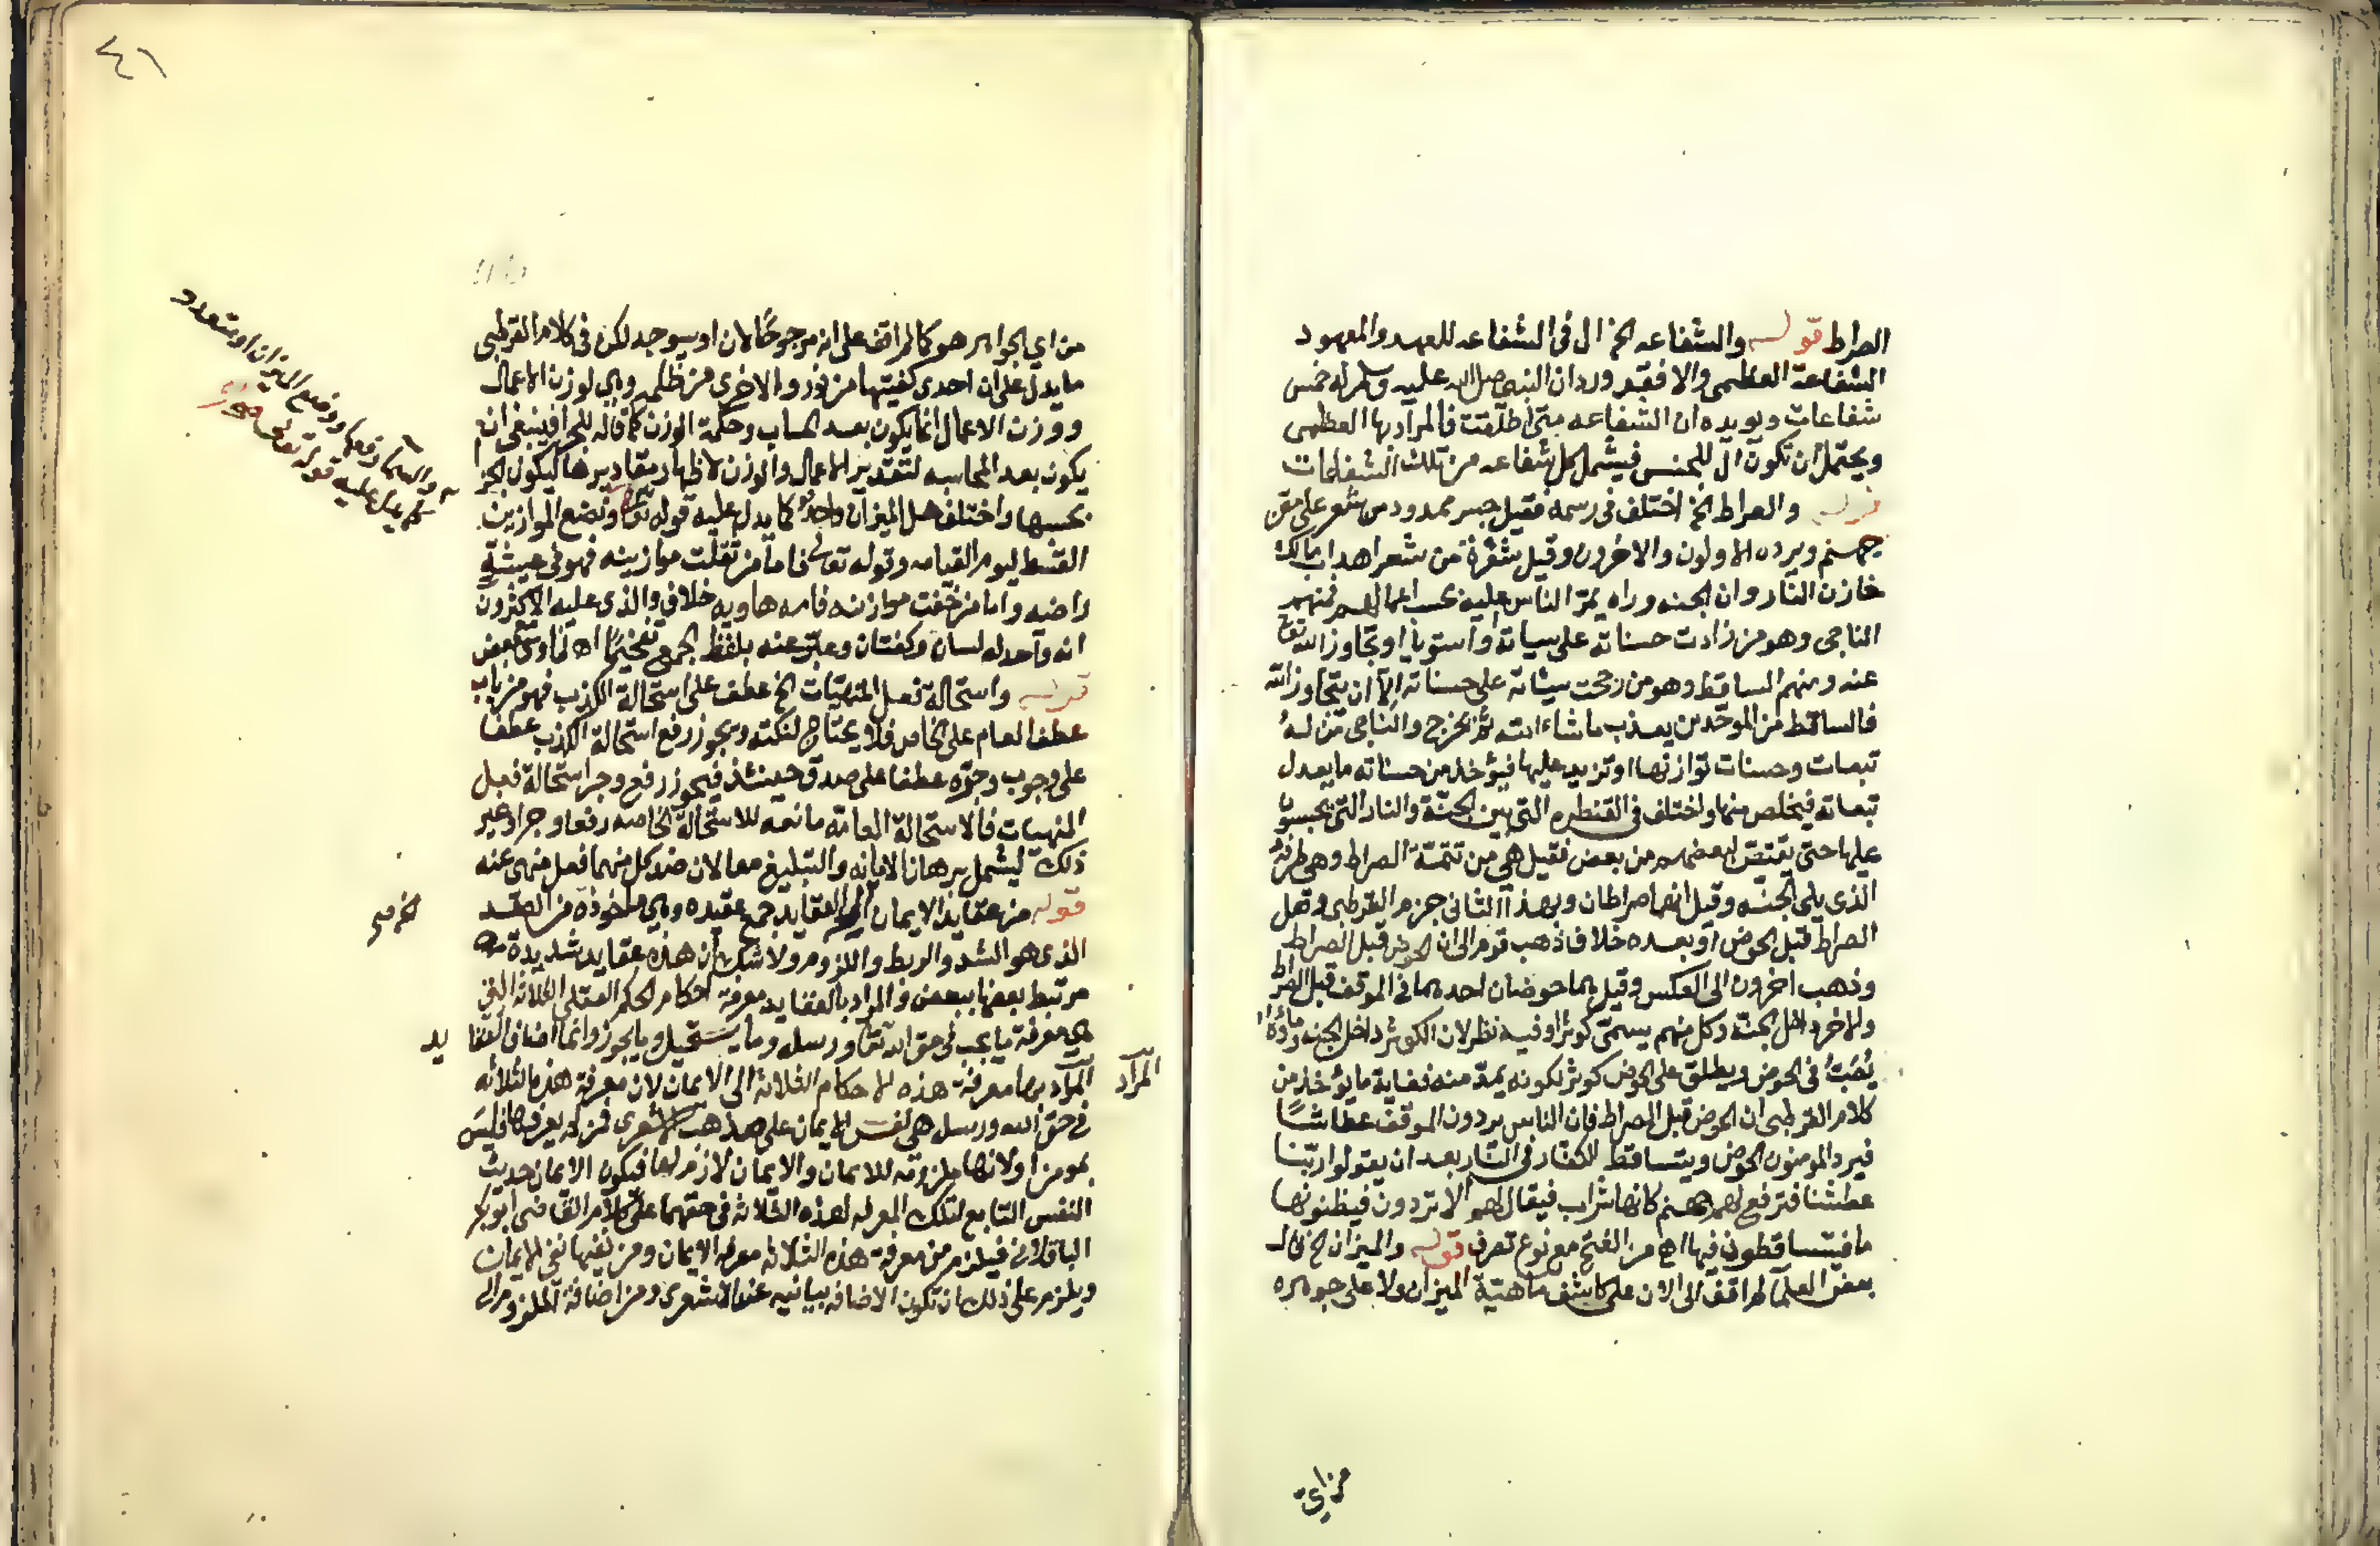 الصراط قوله والشفاعه الخ ال فى الشفاعه للعهد والمعهود
الشفاعة العظمى والا فقد ورد ان النبي صلى الله عليه وسلم له خمس
شفاعات ويويده ان الشفاعه متى اطلقت فالمراد بها العظمى
ويحتمل ان تكون ال للجنس فيشمل كل شفاعه من تلك الشفاعات
قوله والصراط الخ اختلف فى رسمه فقيل جسر ممدود من شعر على متن
جهنم ويرده الاولون والاخرون وقيل شعرة من شعر اهداب مالك
خازن النار وان الجنه وراه يمر الناس عليه بحسب اعمالهم فمنهم
الناجى وهو من زادت حسناته على سياته او استويا او تجاوز الله تعا
عنه ومنهم الساقط وهو من رجحت سيئاته على حسناته الا ان يتجاوز الله
فالساقط من الموحدين يعذب ما شاء الله ثم يخرج والناجى من له
تبعات وحسنات توازنها او تزيد عليها فيؤخذ من حسناته ما يعدل
تبعاته فيخلص منها واختلف فى القنطره التى بين الجنة والنار التى يحبسون
عليها حتى يقتص لبعضهم من بعض فقيل هى من تتمة الصراط وهى طرفه
الذى يلى الجنه وقيل انهما صراطان وبهذا الثانى جزم القرطبى وهل
الصراط قبل الحوض او بعده خلاف فذهب قوم الى ان الحوض قبل الصراط
وذهب اخرون الى العكس وقيل هما حوضان احدهما فى الموقف قبل الصراط
والاخر داخل الجنة وكل منهم يسمى كوثرا وفيه نظر لان الكوثر داخل الجنه وماؤه
يصب فى الحوض ويطلق على الحوض كوثر لكونه يمد منه فغاية ما يؤخذ من
كلام القرطبى ان الحوض قبل الصراط فان الناس يردون الموقف عطاشا
فيرد المومنون الحوض ويتساقط الكفار فى النار بعد ان يقولوا ربنا
عطشنا فترفع لهم جهنم كانها سراب فيقال لهم الا تردون فيظنونها
ما فيتساقطون فيها اه من الفتح مع نوع تصرف قوله والميزان الخ قال
بعض العلما لم اقف الى الان على كاشف ماهية الميزان ولا على جوهره
من اي
٤١
من اي الجواهر هو كما لم اقف على انه موجود الان او سيوجد لكن فى كلام القرطبى
ما يدل على ان احدى كفتيها من نور والاخرى من ظلمه وهى لوزن الاعمال
ووزن الاعمال انما يكون بعد الحساب وحكمة الوزن كما قاله للجزا فينبغى ان
يكون بعد المحاسبه لتقدير الاعمال والوزن لاظهار مقاديرها ليكون الجزا
بحسبها واختلف هل الميزان واحد كما يدل عليه قوله تعا ونضع الموازين
القسط ليوم القيامه وقوله تعالى فاما من ثقلت موازينه فهو فى عيشة
راضيه واما من خفت موازينه فامه هاويه خلاف والذى عليه الاكثرون
انه واحد له لسان وكفتان وعبر عنه بلفظ الجمع تفخيما اه لقاوى مع بعض
قوله واستحالة فعل المنهيات الخ عطف على استحالة الكذب فهو من باب
عطف العام على الخاص فلا يحتاج لنكته ويجوز رفع استحالة الكذب عطفا
على وجوب وجره عطفا على صدق حينئذ فيجوز رفع وجر استحالة فعل
المنهيات فالاستحالة العامه مانعه للاستحالة الخاصه رفعا وجرا وعبر
ذلك ليشمل برهان الامانه والتبليغ معا لان ضد كل منهما فعل منهى عنه
قوله من عقايد الايمان العقايد جمع عقيده وهي ماخوذة من العقد
الذى هو الشد والربط واللزوم ولا شك ان هذه عقايد شديدة
مرتبط بعضها ببعض والمراد بالعقايد معرفة احكام الحكم العقلى الثلاثه التى
هى معرفة ما يجب فى حق الله تعا ورسله وما يستحيل وما يجوز وانما اضاف العقا يد
المراد بها معرفة هذه الاحكام الثلاثه الى الايمان لان معرفة هذه الثلاثه
فى حق الله ورسله هى نفس الايمان على مذهب الاشعرى فمن لم يعرفها فليس
بمومن او لانها ملزومه للايمان والايمان لازم لها فيكون الايمان حديث
النفس التابع لتلك المعرفه لهذه الثلاثه فى حقهما على كلام القاضى ابو بكر
الباقلانى فيلزم من معرفة هذه الثلاثه معرفه الايمان ومن نفيها نفى الايمان
ويلزم على ذلك ان تكون الاضافه بيانيه عند الاشعرى ومن اضافة الملزوم الى
او متعدد
والسما رفعها ووضع الميزان
كما يدل عليه قوله تعالى
المراد